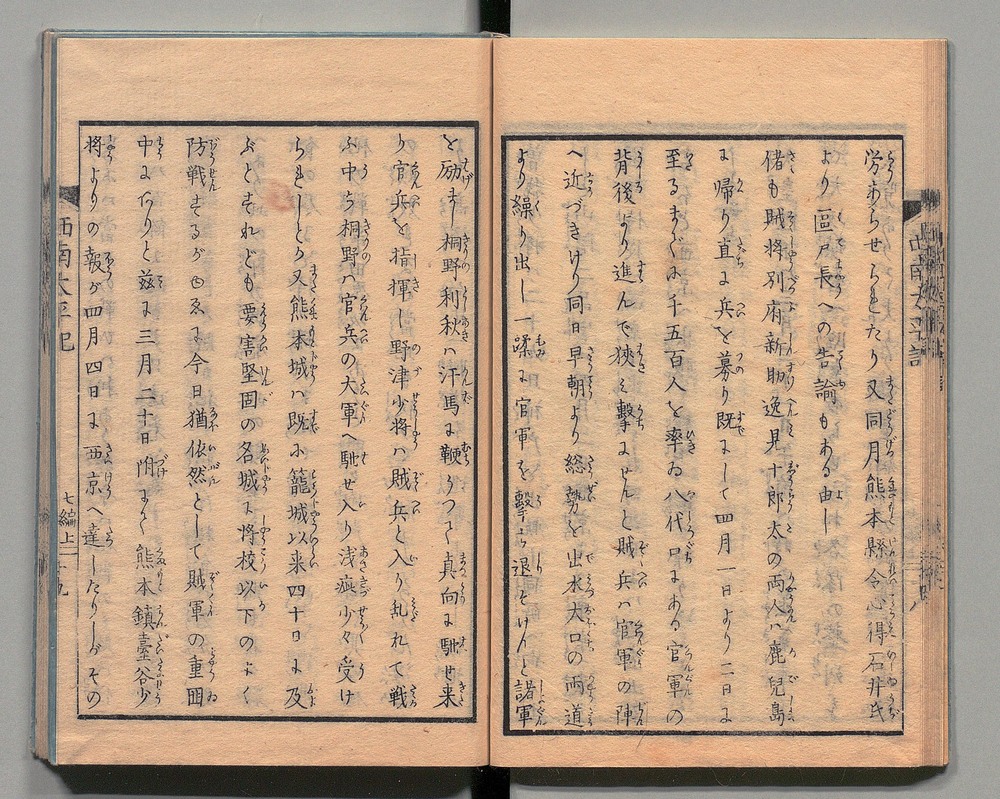 労あらせられたり又同月熊本縣令心得石井氏
より區戸長への告諭もある由し
偖も賊将別府新助逸見十郎太の両人ハ鹿兒島
に帰り直に兵を募り既にして四月一日より二日に
至るまでに千五百人を率ゐ八代口にある官軍の
背後より進んで狭み撃にせんと賊兵ハ官軍の陣
へ近づきけり同日早朝より総勢を出水大口の両道
より繰り出し一蹂に官軍を撃ち退そけんと諸軍
を励まし桐野利秋ハ汗馬に鞭うつて真向に馳せ来
り官兵を指揮し野津少将ハ賊兵と入り乱れて戦
ふ中ち桐野ハ官兵の大軍へ馳せ入り浅疵少々受け
られしとう又熊本城ハ既に籠城以来四十日に及
ぶとすれども要害堅固の名城に将校以下のよく
防戦するが故ゑに今日猶依然として賊軍の重囲
中にありと茲に三月二十日附まて熊本鎮臺谷少
将よりの報が四月四日に西京へ達したりしがその
西南太平記
七編上